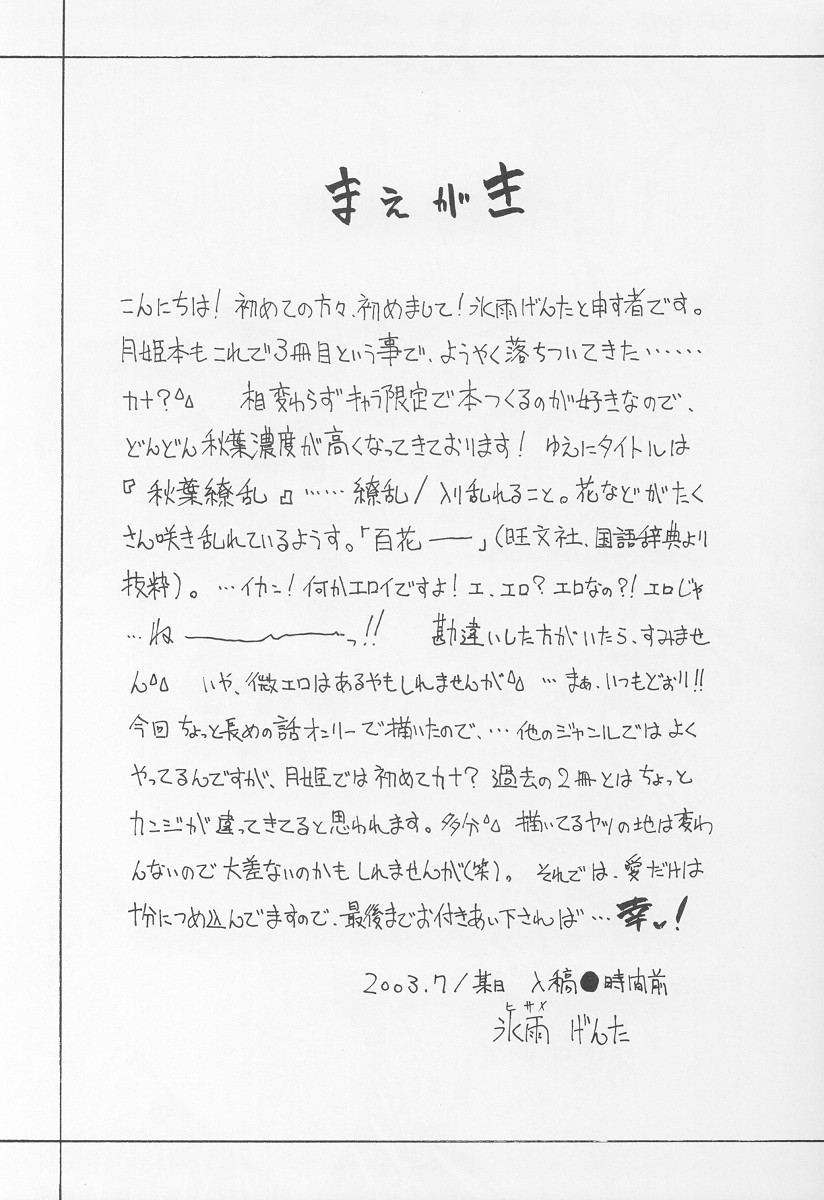 まえがき
こんにちは！ 初めての方々、初めまして！氷雨げんたと申す者です。
月姫本もこれで3冊目という事で、ようやく落ちついてきた……
カナ？^^ 相変わらずキャラ限定で本つくるのが好きなので、
どんどん秋葉濃度が高くなってきております！ ゆえにタイトルは
『 秋葉繚乱 』……繚乱/入り乱れること。花などがたく
さん咲き乱れているようす。「百花――」(旺文社、国語辞典より
抜粋)。…イカン！何かエロイですよ！エ、エロ？エロなの？！エロじゃ
…ね――――っ！！ 勘違いした方がいたら、すみませ
ん^^ いや、微エロはあるやもしれませんが^^ …まぁ、いつもどおり！！
今回ちょっと長めの話オンリーで描いたので、…他のジャンルではよく
やってるんですが、月姫では初めてカナ？過去の2冊とはちょっと
カンジが違ってきてると思われます。多分^^ 描いてるヤツの地は変わ
んないので大差ないのかもしれませんが(笑)。それでは、愛だけは
十分につめ込んでますので、最後までお付きあい下されば…幸♥！
2003.7/某日 入稿●時間前
ヒサメ
氷雨 げんた